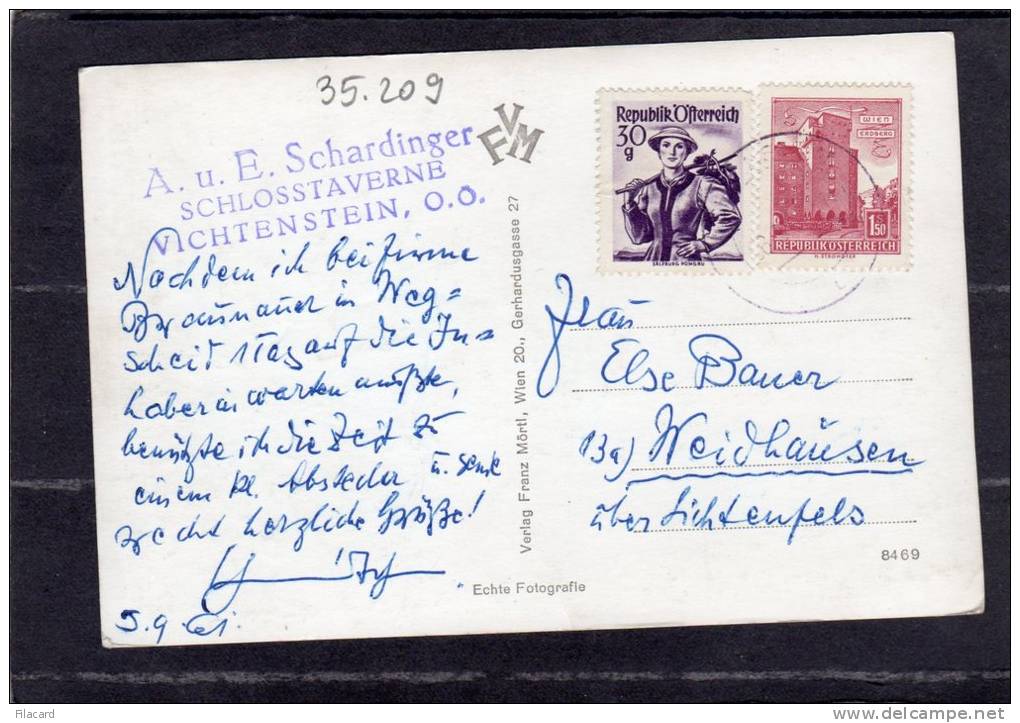 35.209
A. u. E. Schardinger
SCHLOSSTAVERNE
VICHTENSTEIN, O.Ö.
FVM
Republik Österreich
30
g
SALZBURG PONGAU
WIEN
ERDBERG
1.50
REPUBLIK ÖSTERREICH
H. STROHOFER
Nachdem ich bei Firma
Braunauer in Weg=
scheid 1 Tag auf die In=
haberin warten mußte,
benützte ich die Zeit zu
einem kl. Abstecher u. sende
recht herzliche Grüße!
5.9.61.
Verlag Franz Mörtl, Wien 20., Gerhardusgasse 27
Echte Fotografie
Frau
Else Bauer
13a) Weidhausen
über Lichtenfels
8469
Filacard
www.delcampe.net